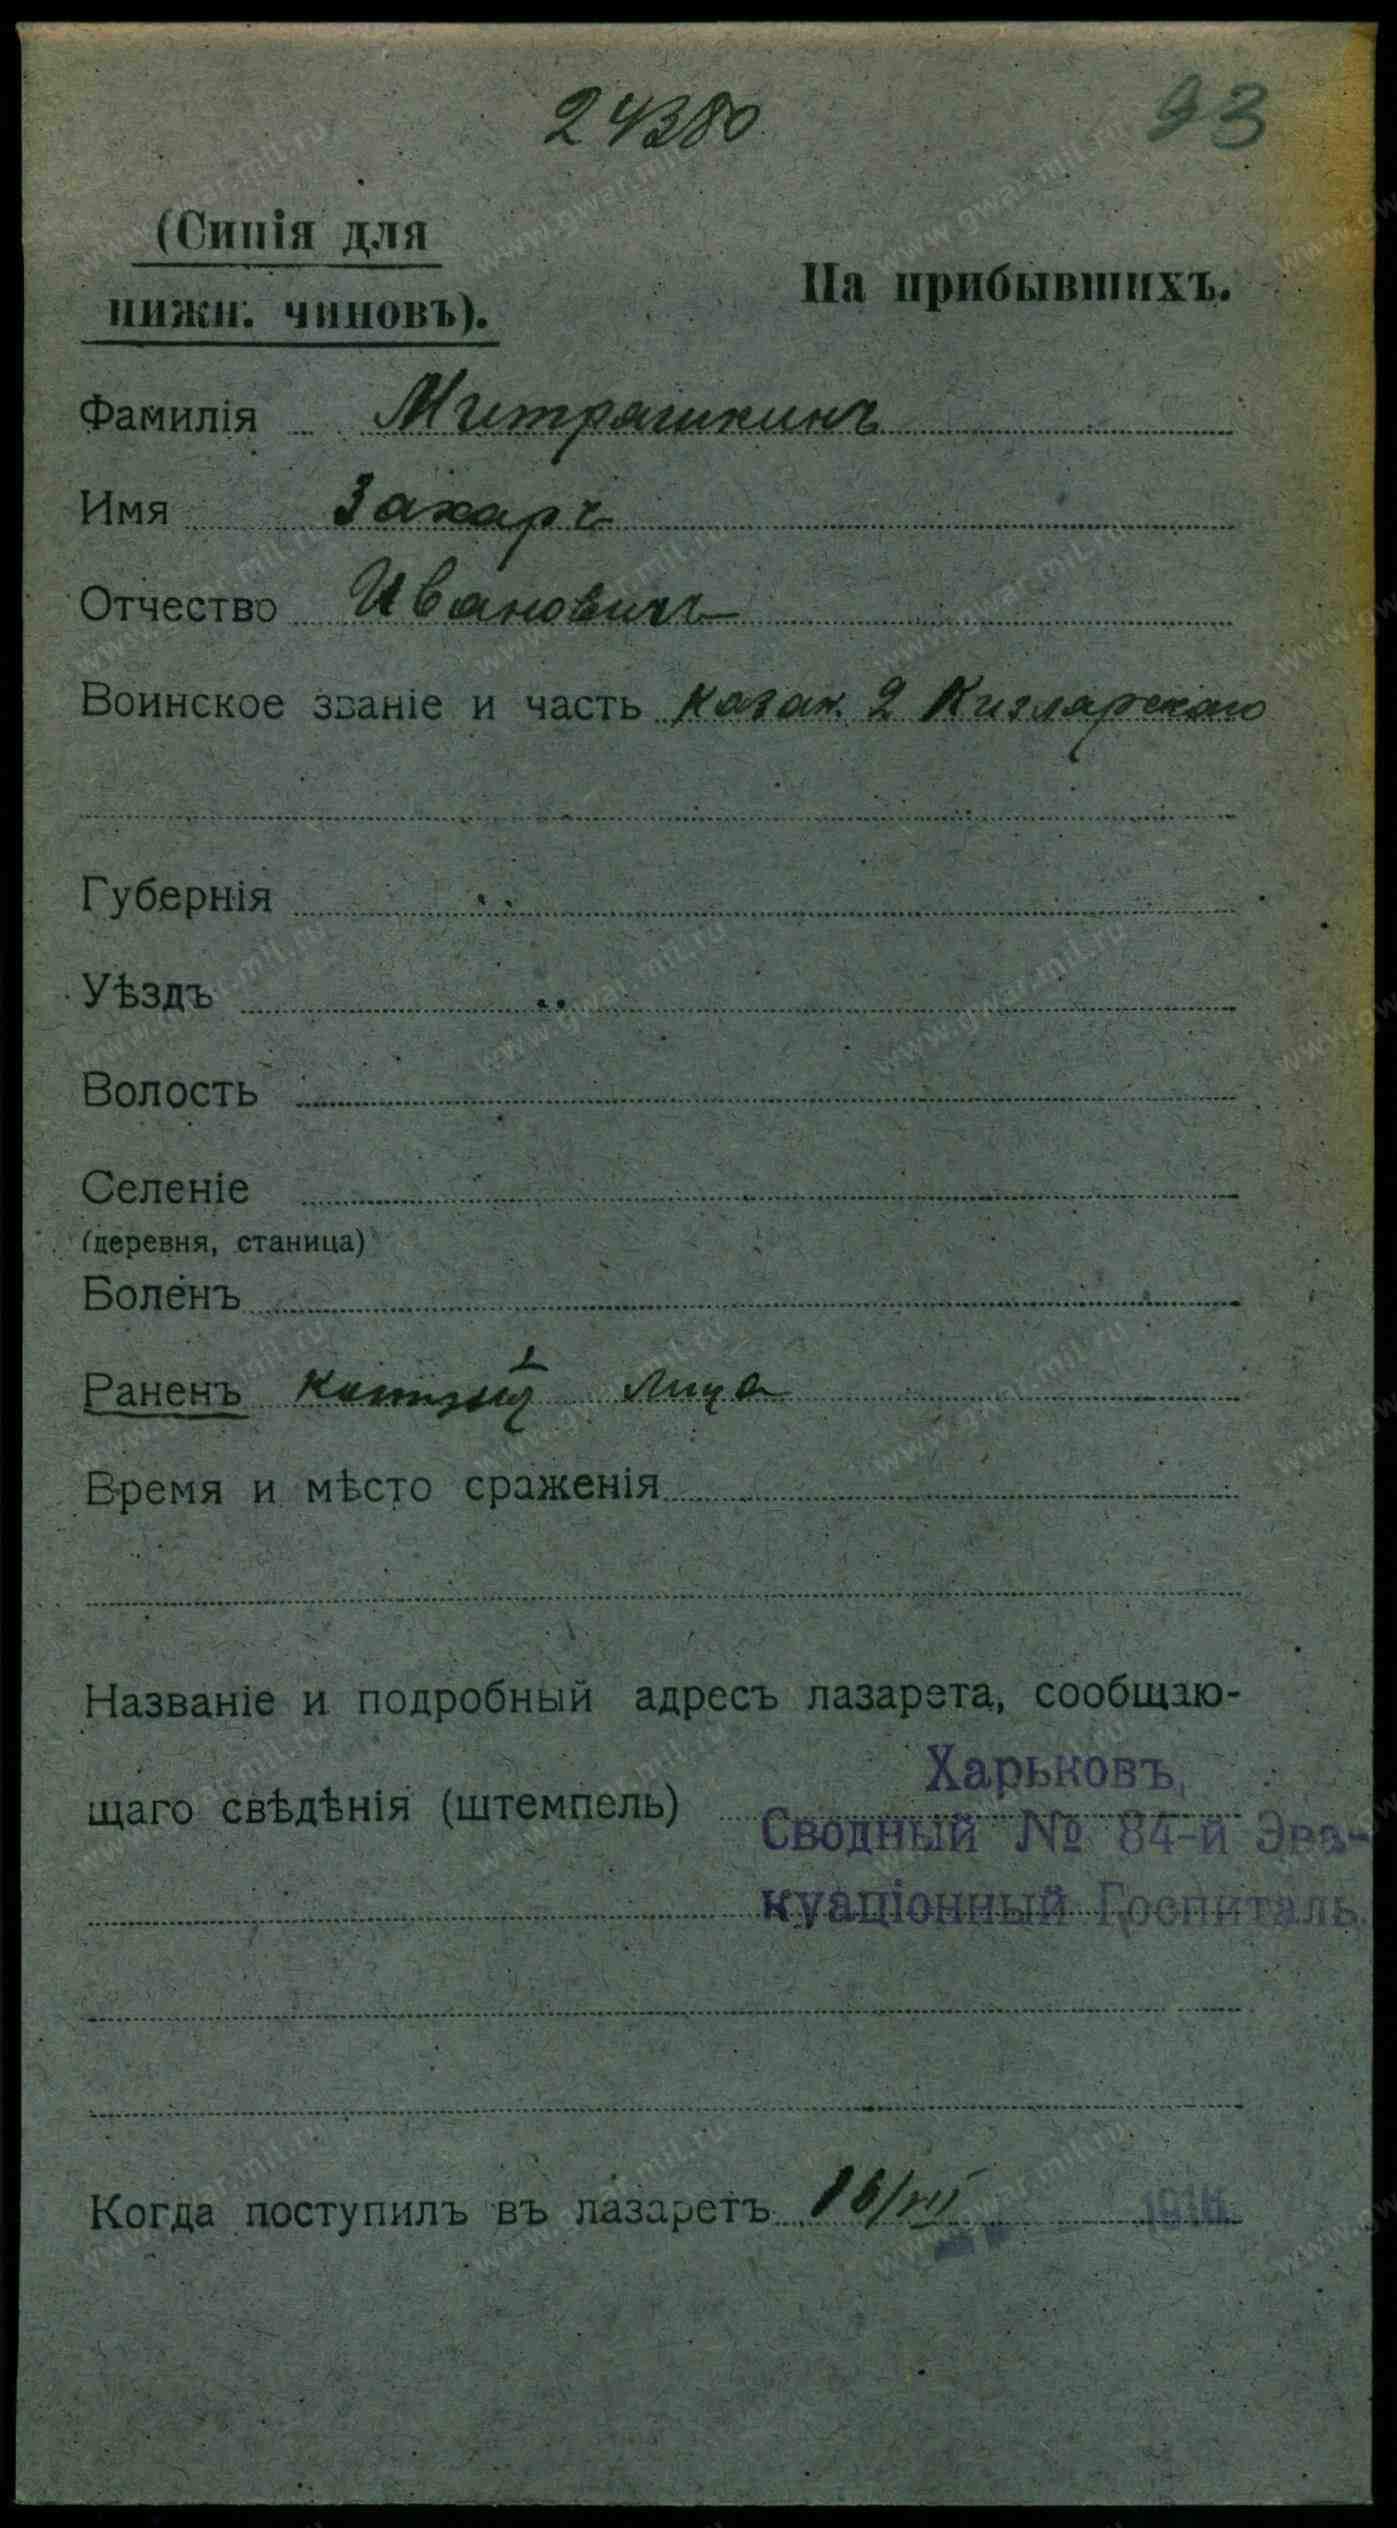 24380
93
(Синія для
нижн. чиновъ).
На прибывшихъ.
Фамилія Митряшкинъ
Имя Захаръ
Отчество Ивановичъ
Воинское званіе и часть казак. 2 Кизлярскаго
Губернія
Уѣздъ
Волость
Селеніе
(деревня, станица)
Боленъ
Раненъ лица
Время и мѣсто сраженія
Названіе и подробный адресъ лазарета, сообщаю-
щаго свѣдѣнія (штемпель) Харьковъ,
Сводный № 84-й Эва-
куаціонный Госпиталь.
Когда поступилъ въ лазаретъ 16/VII 1916
www.gwar.mil.ru